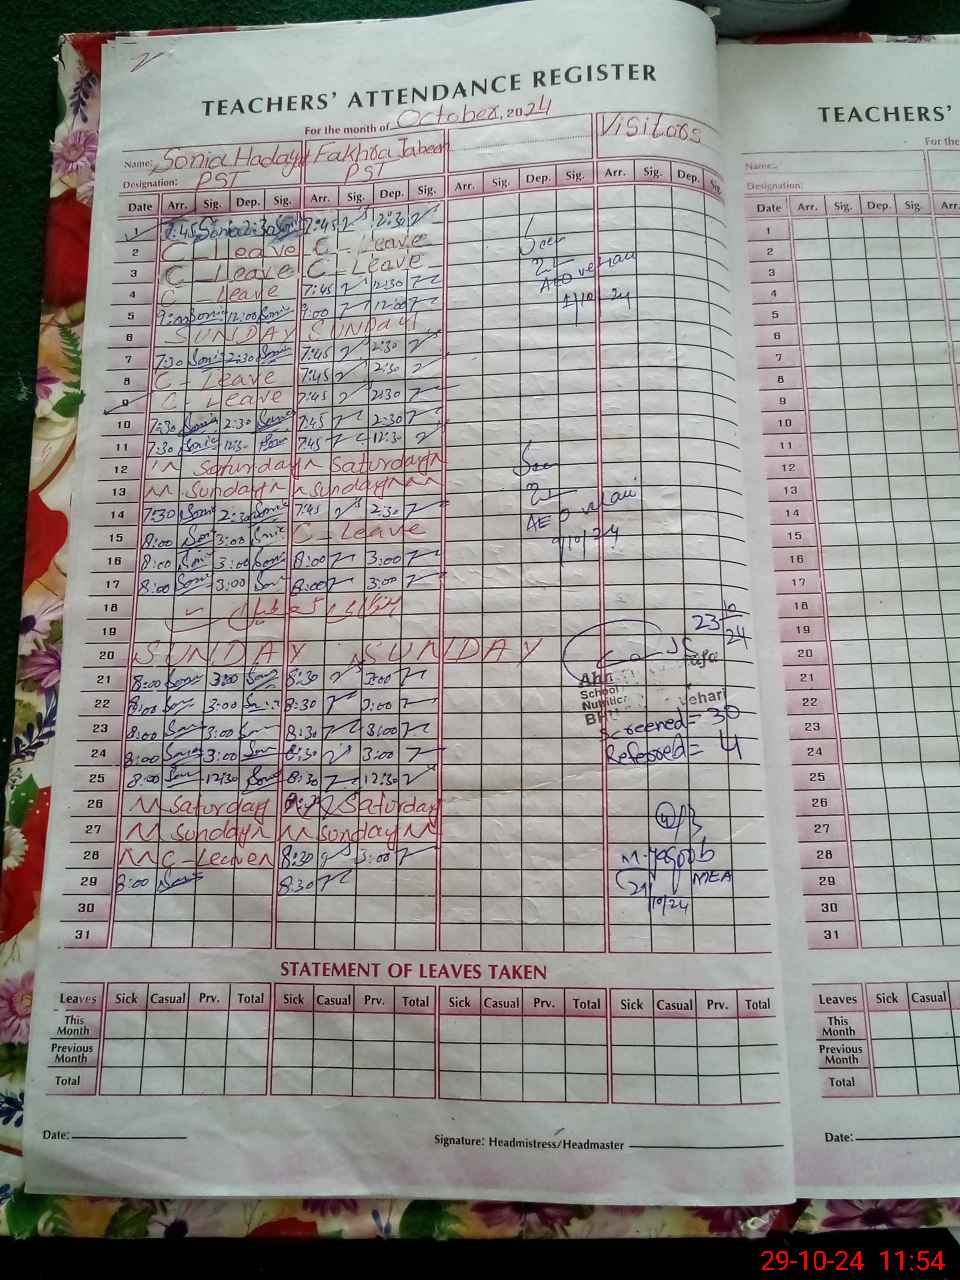 TEACHERS' ATTENDANCE REGISTER
For the month of October, 2024
Name: Sonia Hadayat Fakhra Jabeen Visitors
Designation: PST PST
Date Arr. Sig. Dep. Sig. Arr. Sig. Dep. Sig. Arr. Sig. Dep. Sig. Arr. Sig. Dep. Sig.
1 7:45 Sonia 2:30 Sonia 7:45 2:30
2 C - Leave C - Leave
3 C - Leave C - Leave
4 C - Leave 7:45 12:30
AEO vehari
5 9:00 Sonia 12:00 Sonia 9:00 12:00
6 SUNDAY SUNDAY
7 7:30 Sonia 2:30 Sonia 7:45 2:30
8 C - Leave 7:45 2:30
9 C - Leave 7:45 2:30
10 7:30 Sonia 2:30 Sonia 7:45 2:30
11 7:30 Sonia 12:30 Sonia 7:45 12:30
12 Saturday Saturday
13 Sunday Sunday
14 7:30 Sonia 2:30 Sonia 7:45 2:30
AEO vehari
15 8:00 Sonia 3:00 Sonia C - Leave
16 8:00 Sonia 3:00 Sonia 8:00 3:00
17 8:00 Sonia 3:00 Sonia 8:00 3:00
18
19
23/10/24
20 SUNDAY SUNDAY
21 8:00 Sonia 3:00 Sonia 8:30 3:00
School
22 8:00 Sonia 3:00 Sonia 8:30 3:00
Nutrition Vehari
BHU
23 8:00 Sonia 3:00 Sonia 8:30 3:00
Screened = 30
24 8:00 Sonia 3:00 Sonia 8:30 3:00
Referred = 4
25 8:00 Sonia 12:30 Sonia 8:30 12:30
26 Saturday Saturday
27 Sunday Sunday
28 C - Leave 8:30 3:00
M. Yaqoob
29 8:00 Sonia 8:30
MEA
29/10/24
30
31
STATEMENT OF LEAVES TAKEN
Leaves Sick Casual Prv. Total Sick Casual Prv. Total Sick Casual Prv. Total Sick Casual Prv. Total
This Month
Previous Month
Total
Date:
Signature: Headmistress/Headmaster
TEACHERS'
For the
Name:
Designation:
Date Arr. Sig. Dep. Sig. Arr.
1
2
3
4
5
6
7
8
9
10
11
12
13
14
15
16
17
18
19
20
21
22
23
24
25
26
27
28
29
30
31
Leaves Sick Casual
This Month
Previous Month
Total
Date:
29-10-24 11:54